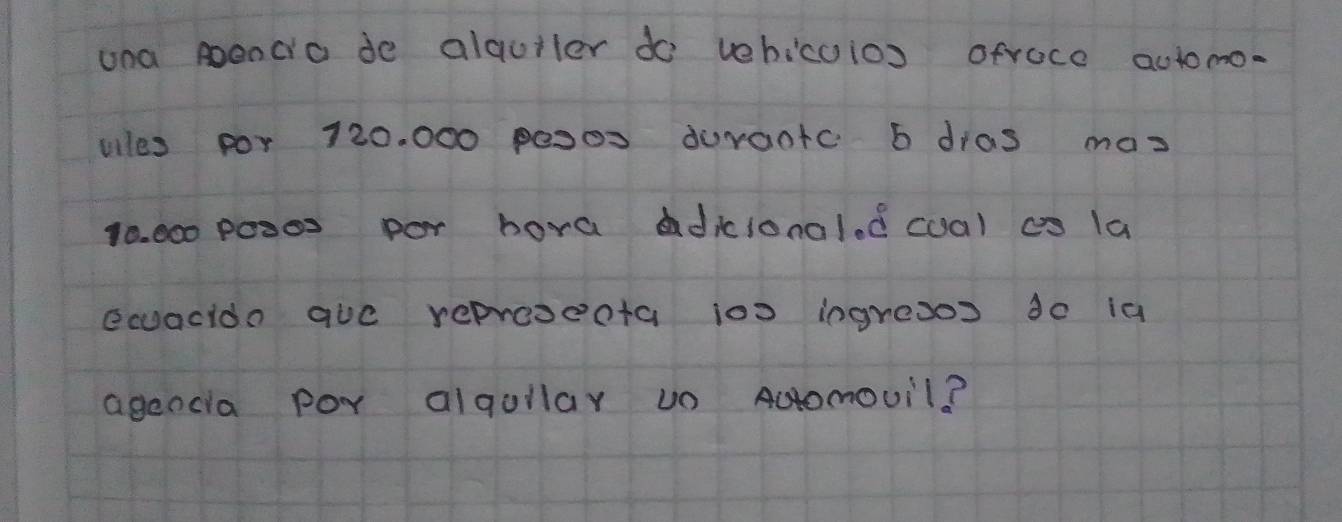 una Agencia de alquiler de vehiculos ofrece automo-
viles por 120.000 pesos durante 5 dias mas
10.000 pesos por hora adicional.¿ cual es la
ecuación que representa los ingresos de la
agencia por alquilar un Automovil?